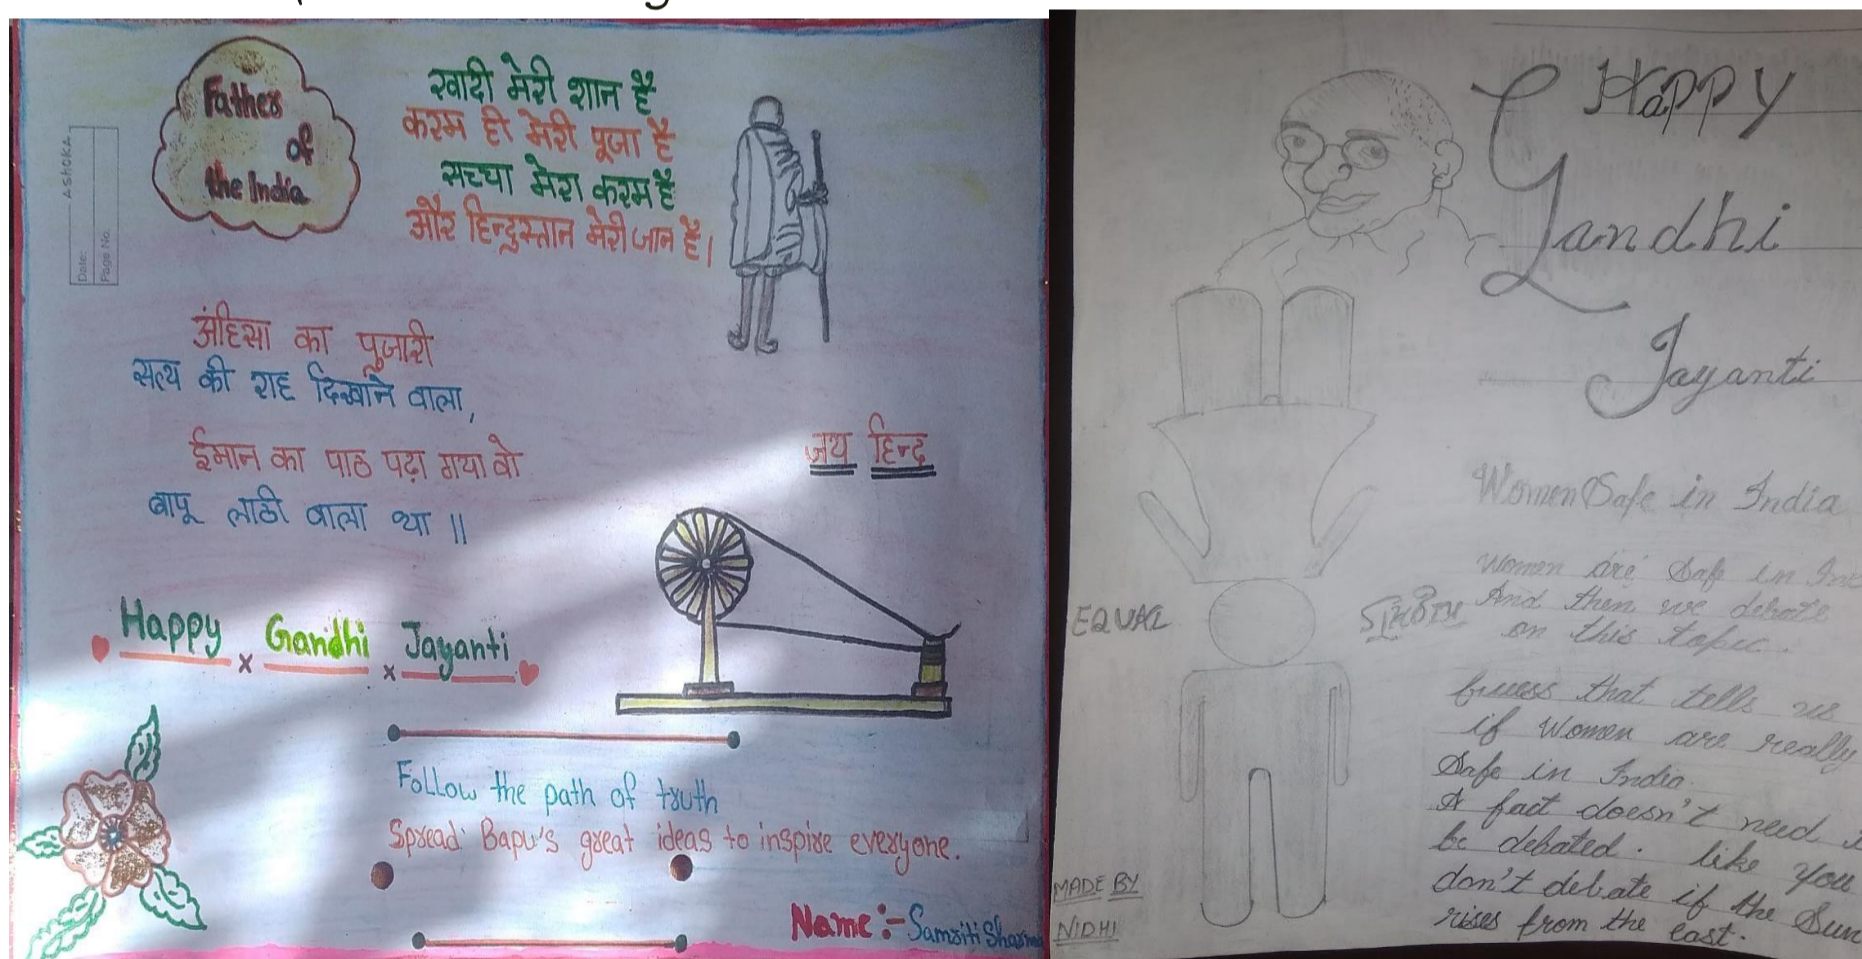 Father
of
the India
ASHOKA
Date:
Page No.
खादी मेरी शान है
करम ही मेरी पूजा है
सच्चा मेरा करम है
और हिन्दुस्तान मेरी जान है।
अंहिसा का पुजारी
सत्य की राह दिखाने वाला,
ईमान का पाठ पढ़ा गया वो
बापू लाठी वाला था ॥
जय हिन्द
Happy x Gandhi x Jayanti
Follow the path of truth
Spread Bapu's great ideas to inspire everyone.
Name:- Samriti Sharma
Happy
Gandhi
Jayanti
Women Safe in India
Women are Safe in
And then we debate
on this topic.
EQUAL
Guess that tells us
if Women are really
Safe in India.
A fact doesn't need
be debated. like you
don't debate if the Sun
rises from the east.
MADE BY
NIDHI